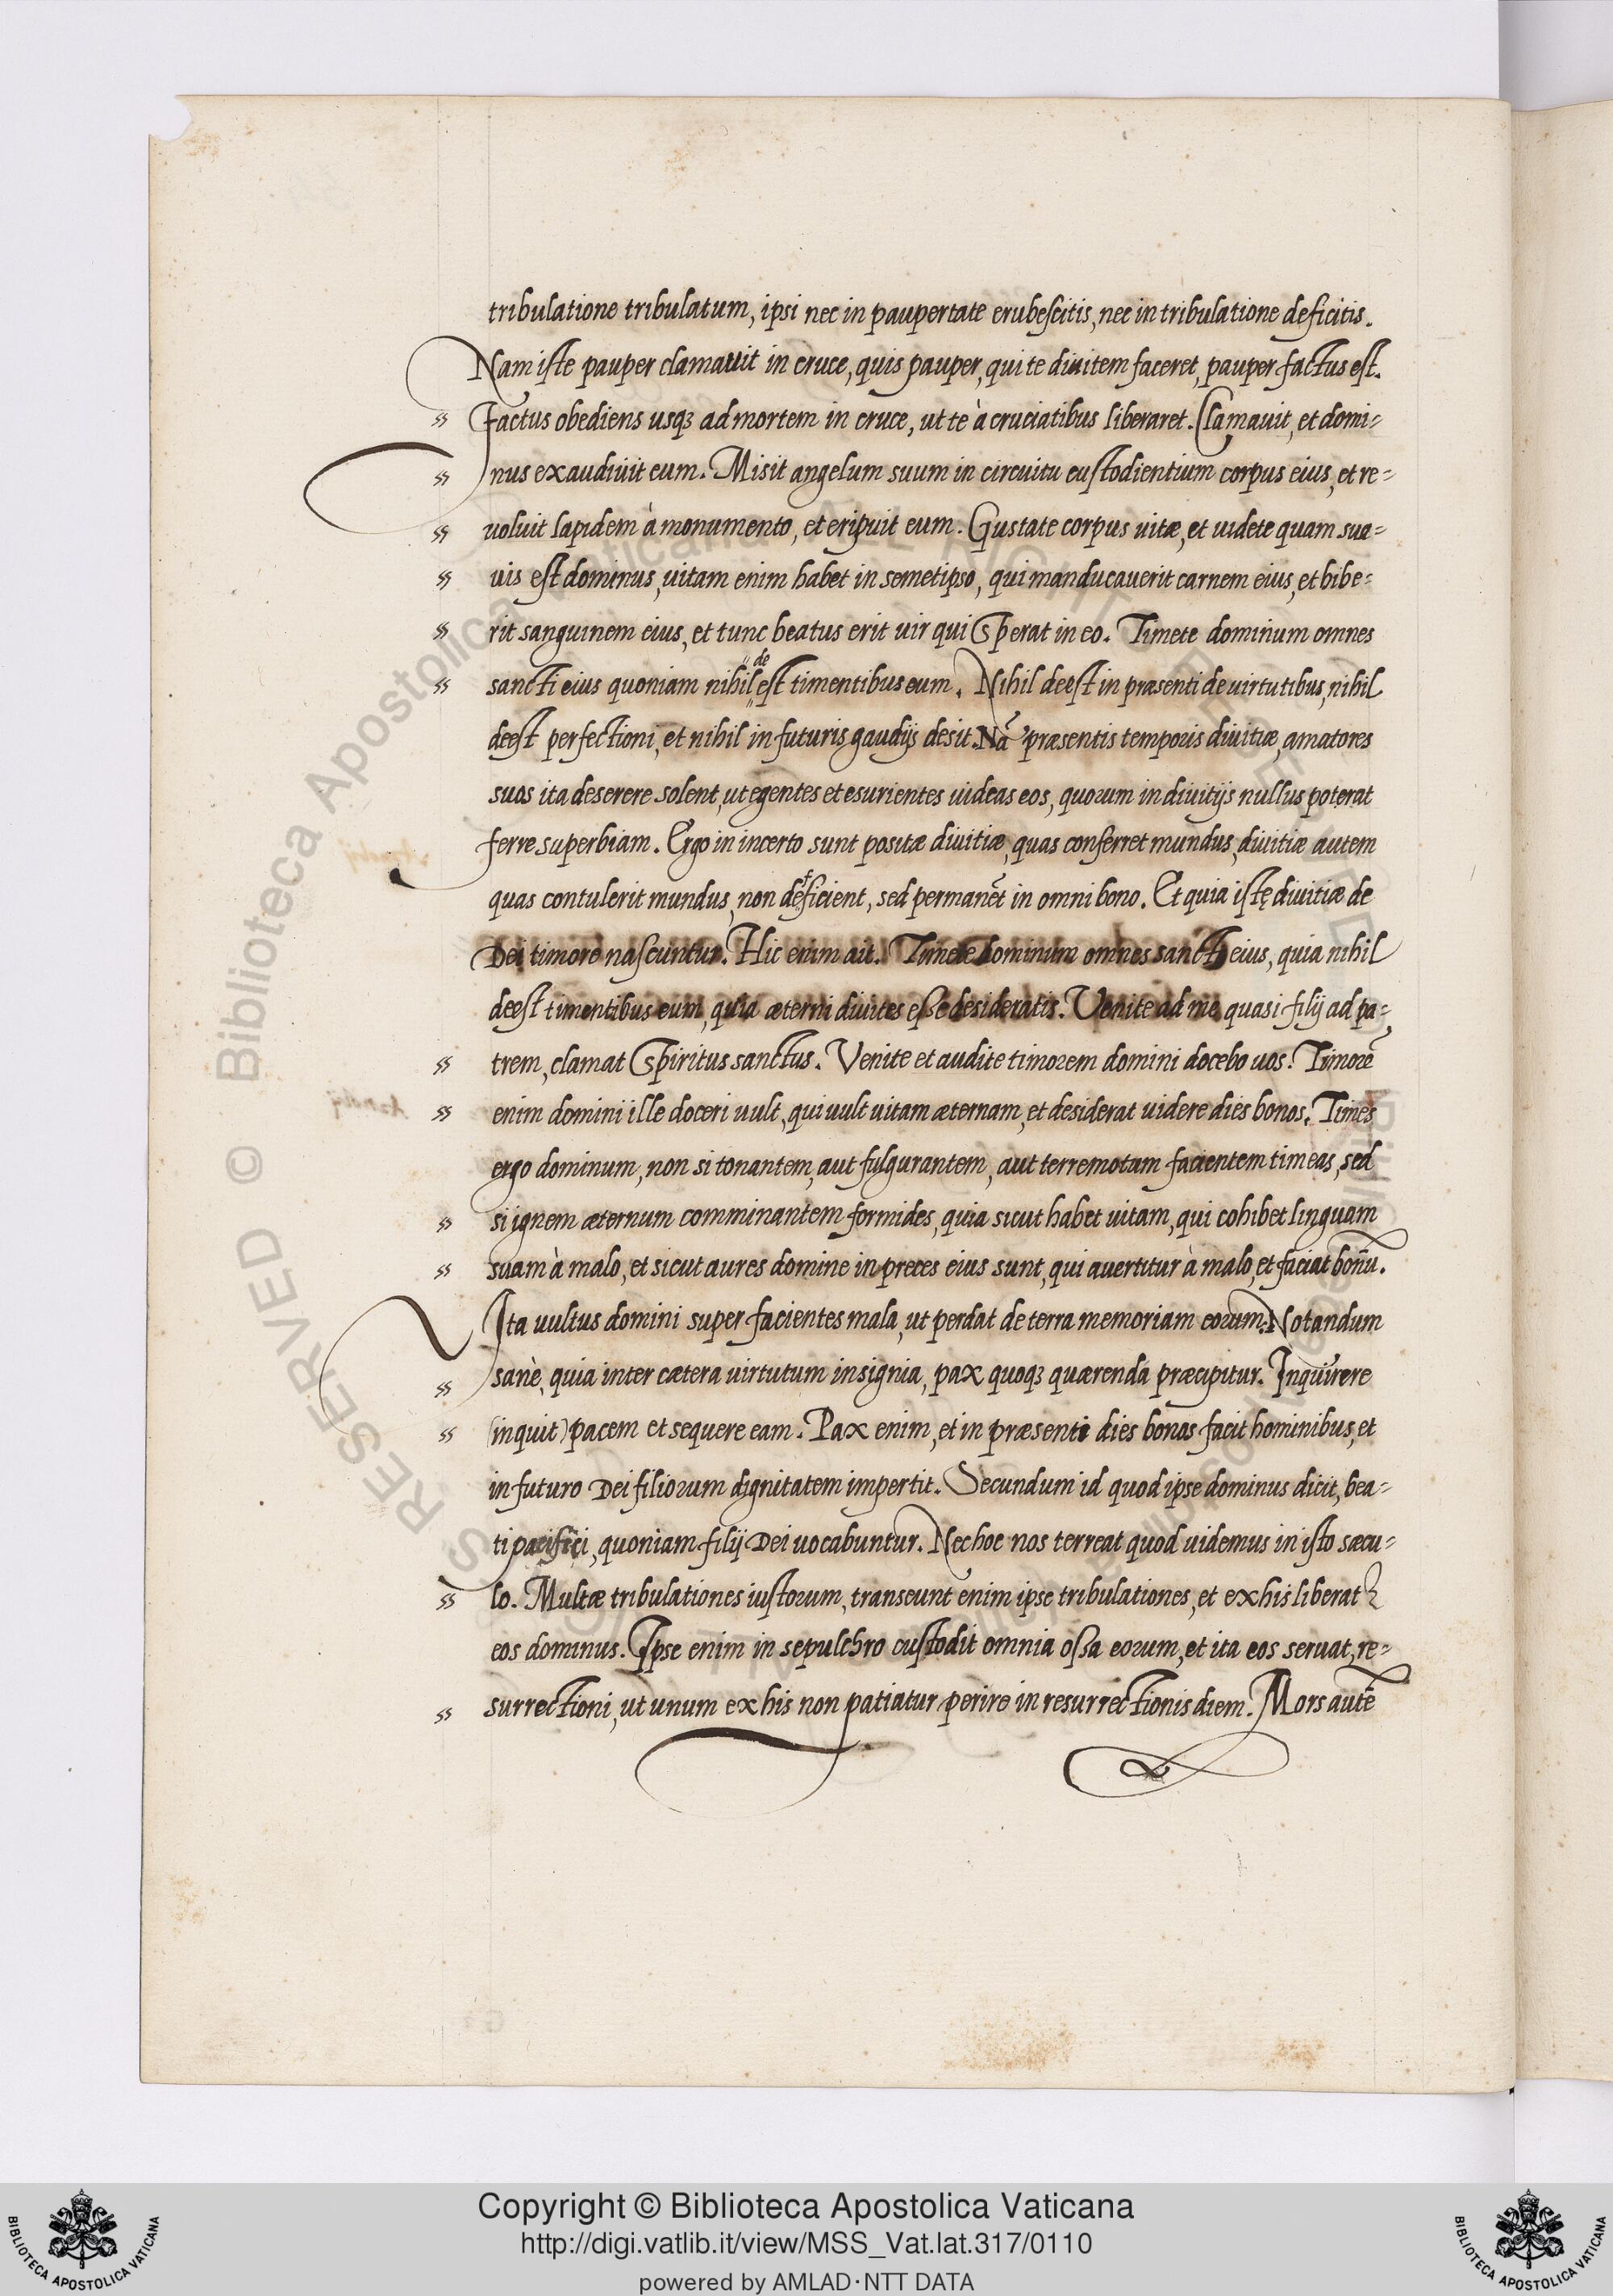 tribulatione tribulatum, ipsi nec in paupertate erubescitis, nec in tribulatione deficitis.
Nam iste pauper clamauit in cruce, quis pauper, qui te diuitem faceret, pauper factus est.
Factus obediens usqꝫ ad mortem in cruce, ut te à cruciatibus liberaret. Clamauit, et domi-
nus exaudiuit eum. Misit angelum suum in circuitu custodientium corpus eius, et re-
uoluit lapidem à monumento, et eripuit eum. Gustate corpus uitæ, et uidete quam sua-
uis est dominus, uitam enim habet in semetipso, qui manducauerit carnem eius, et bibe-
rit sanguinem eius, et tunc beatus erit uir qui sperat in eo. Timete dominum omnes
de
sancti eius quoniam nihil est timentibus eum. Nihil deest in præsenti de uirtutibus, nihil
deest perfectioni, et nihil in futuris gaudijs desit. Nã præsentis temporis diuitiæ, amatores
suos ita deserere solent, ut egentes et esurientes uideas eos, quorum in diuitijs nullus poterat
ferre superbiam. Ergo in incerto sunt positæ diuitiæ, quas conferret mundus, diuitiæ autem
quas contulerit mundus, non deficient, sed permanẽt in omni bono. Et quia istę diuitiæ de
Dei timore nascuntur. Hic enim ait. Timete dominum omnes sancti eius, quia nihil
deest timentibus eum, quia æterni diuites esse desideratis. Venite ad me quasi filij ad pa-
trem, clamat spiritus sanctus. Venite et audite timorem domini docebo uos. Timorẽ
enim domini ille doceri uult, qui uult uitam æternam, et desiderat uidere dies bonos. Times
ergo dominum, non si tonantem, aut fulgurantem, aut terremotum facientem timeas, sed
si ignem æternum comminantem formides, quia sicut habet uitam, qui cohibet linguam
suam à malo, et sicut aures domine in preces eius sunt, qui auertitur à malo, et faciat bonũ.
Ita uultus domini super facientes mala, ut perdat de terra memoriam eorum. Notandum
sanè, quia inter cætera uirtutum insignia, pax quoqꝫ quærenda præcipitur. Inquirere
(inquit) pacem et sequere eam. Pax enim, et in præsenti dies bonos facit hominibus, et
in futuro Dei filiorum dignitatem impertit. Secundum id quod ipse dominus dicit, bea-
ti pacifici, quoniam filij Dei uocabuntur. Nec hoc nos terreat quod uidemus in isto sæcu-
lo. Multæ tribulationes iustorum, transeunt enim ipse tribulationes, et ex his liberat
eos dominus. Ipse enim in sepulchro custodit omnia ossa eorum, et ita eos seruat, re-
surrectioni, ut unum ex his non patiatur perire in resurrectionis diem. Mors autẽ
Copyright © Biblioteca Apostolica Vaticana
http://digi.vatlib.it/view/MSS_Vat.lat.317/0110
powered by AMLAD·NTT DATA
BIBLIOTECA APOSTOLICA VATICANA
BIBLIOTECA APOSTOLICA VATICANA